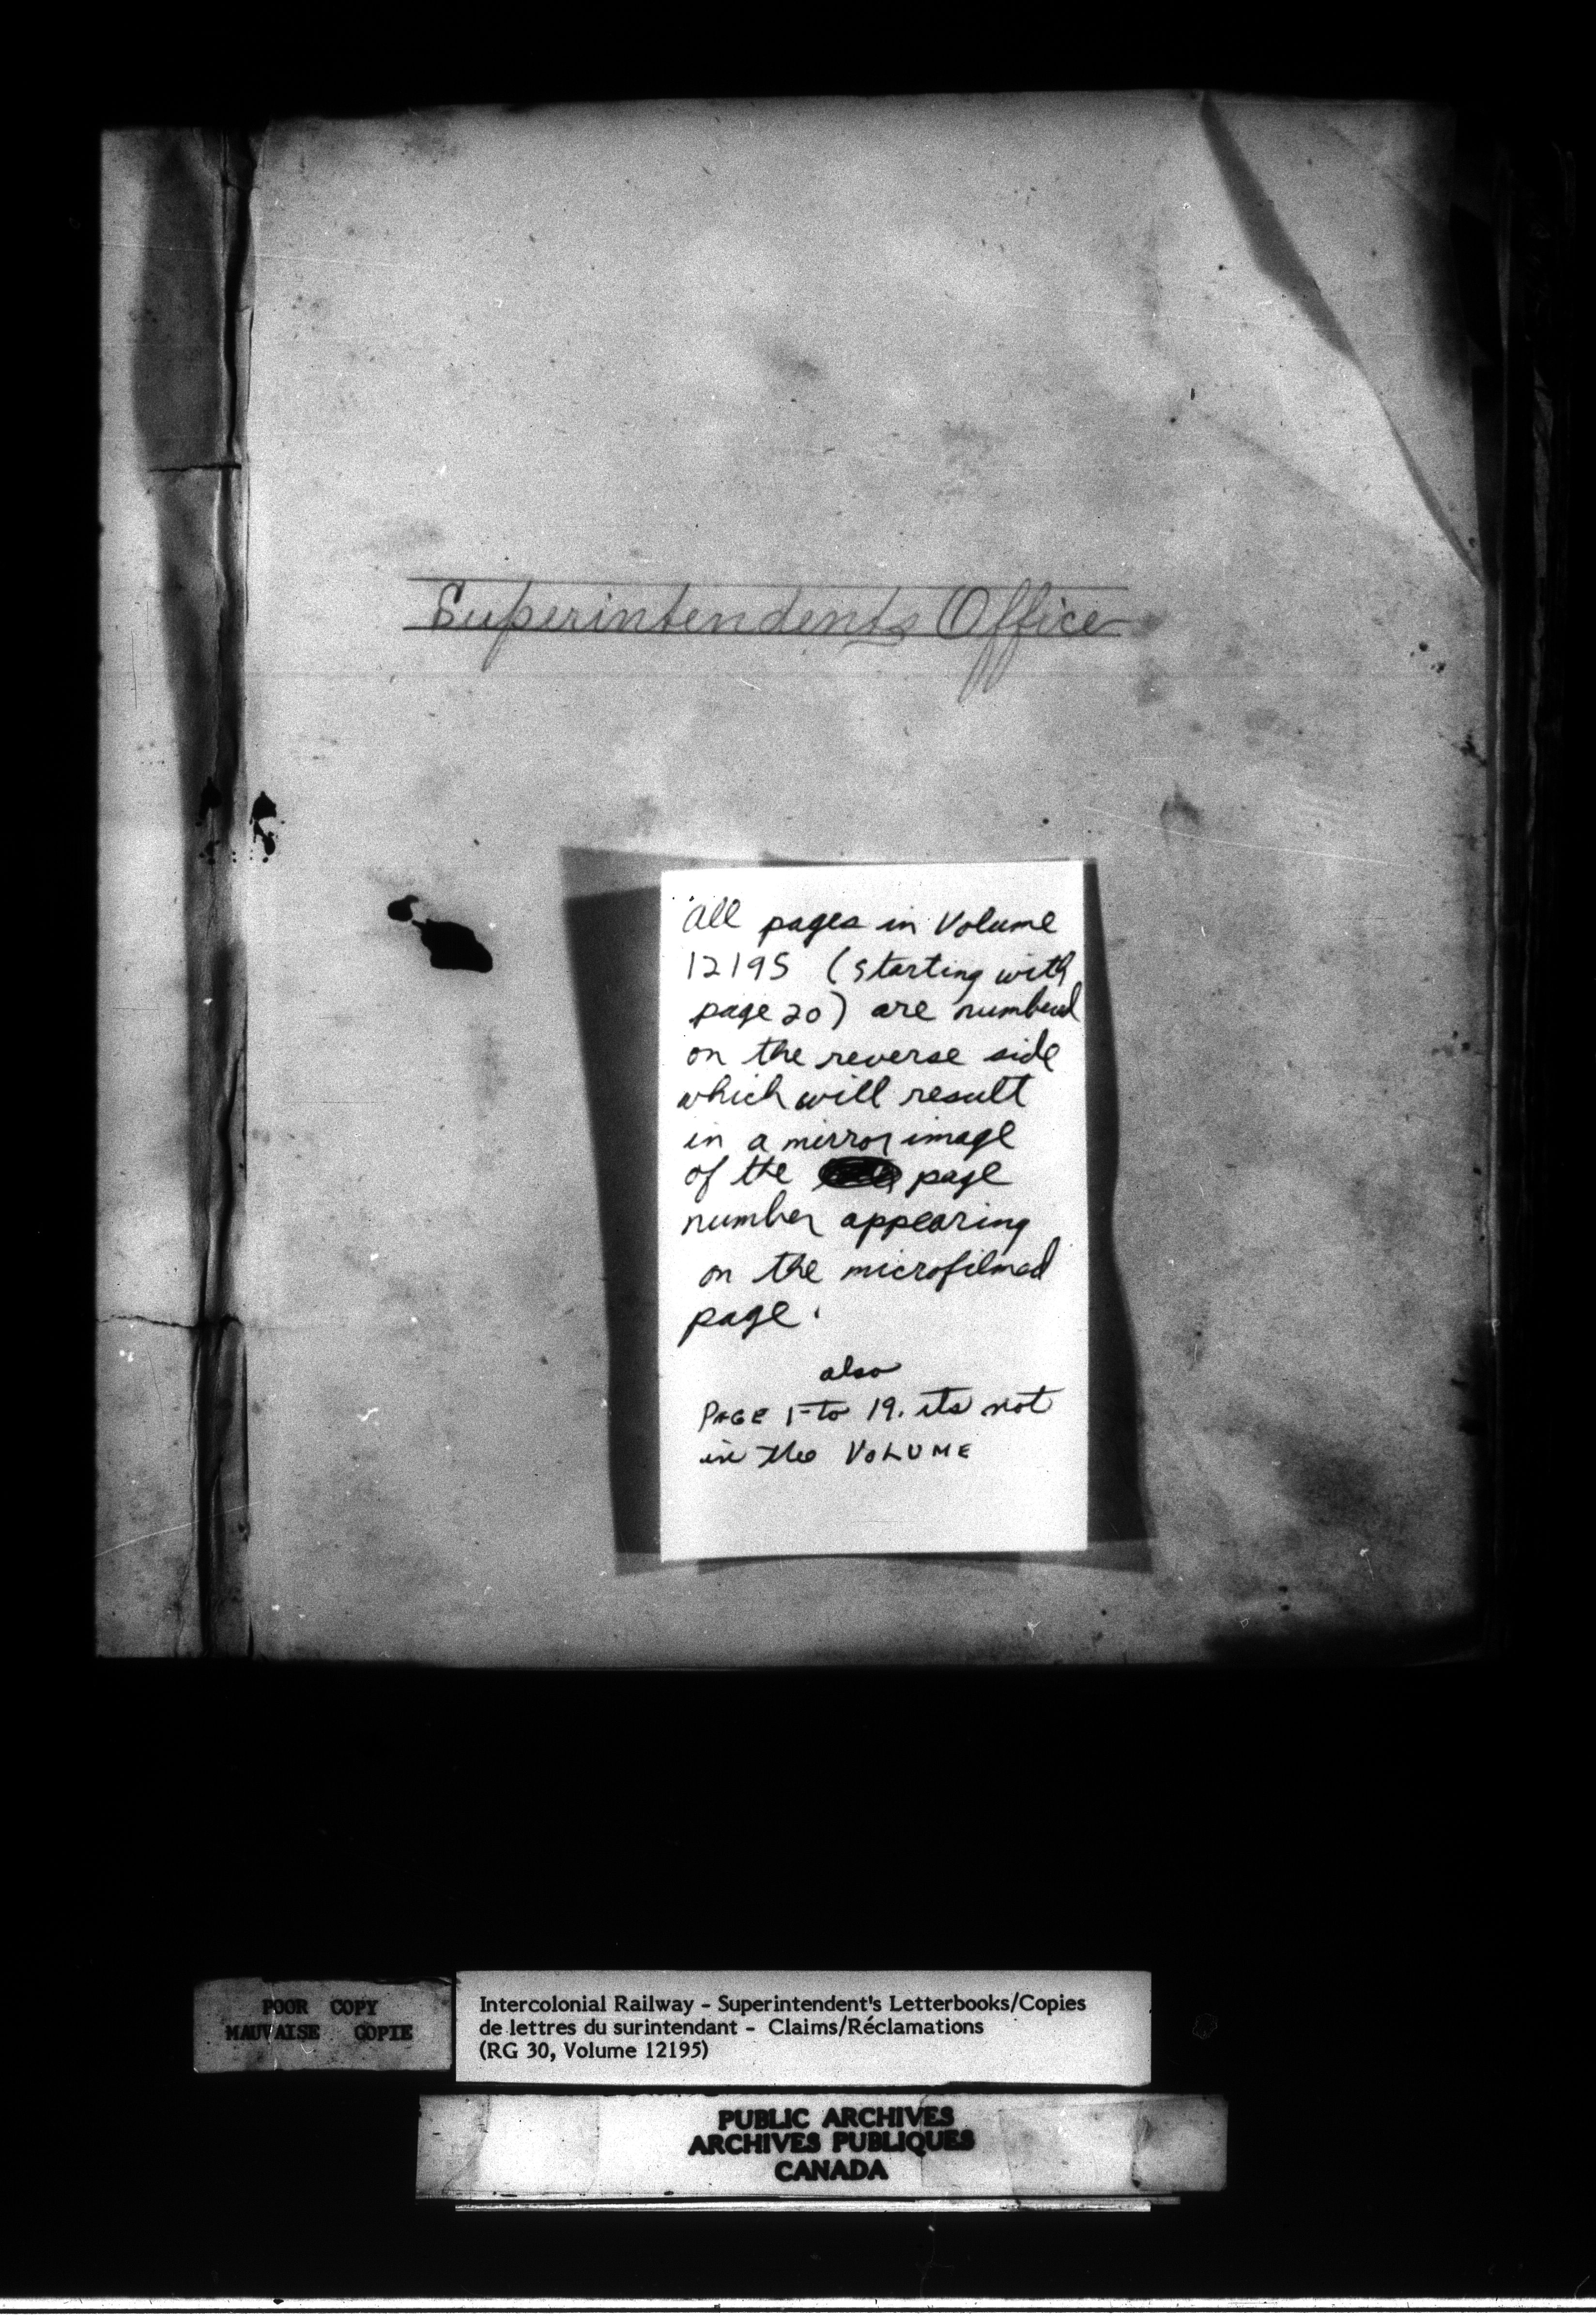 Superintendents Office
All pages in Volume
12195 (starting with
page 20) are numbered
on the reverse side
which will result
in a mirror image
of the page
number appearing
on the microfilmed
page.
also
PAGE 1 to 19. its not
in the VOLUME
POOR COPY
MAUVAISE COPIE
Intercolonial Railway - Superintendent's Letterbooks/Copies
de lettres du surintendant - Claims/Réclamations
(RG 30, Volume 12195)
PUBLIC ARCHIVES
ARCHIVES PUBLIQUES
CANADA